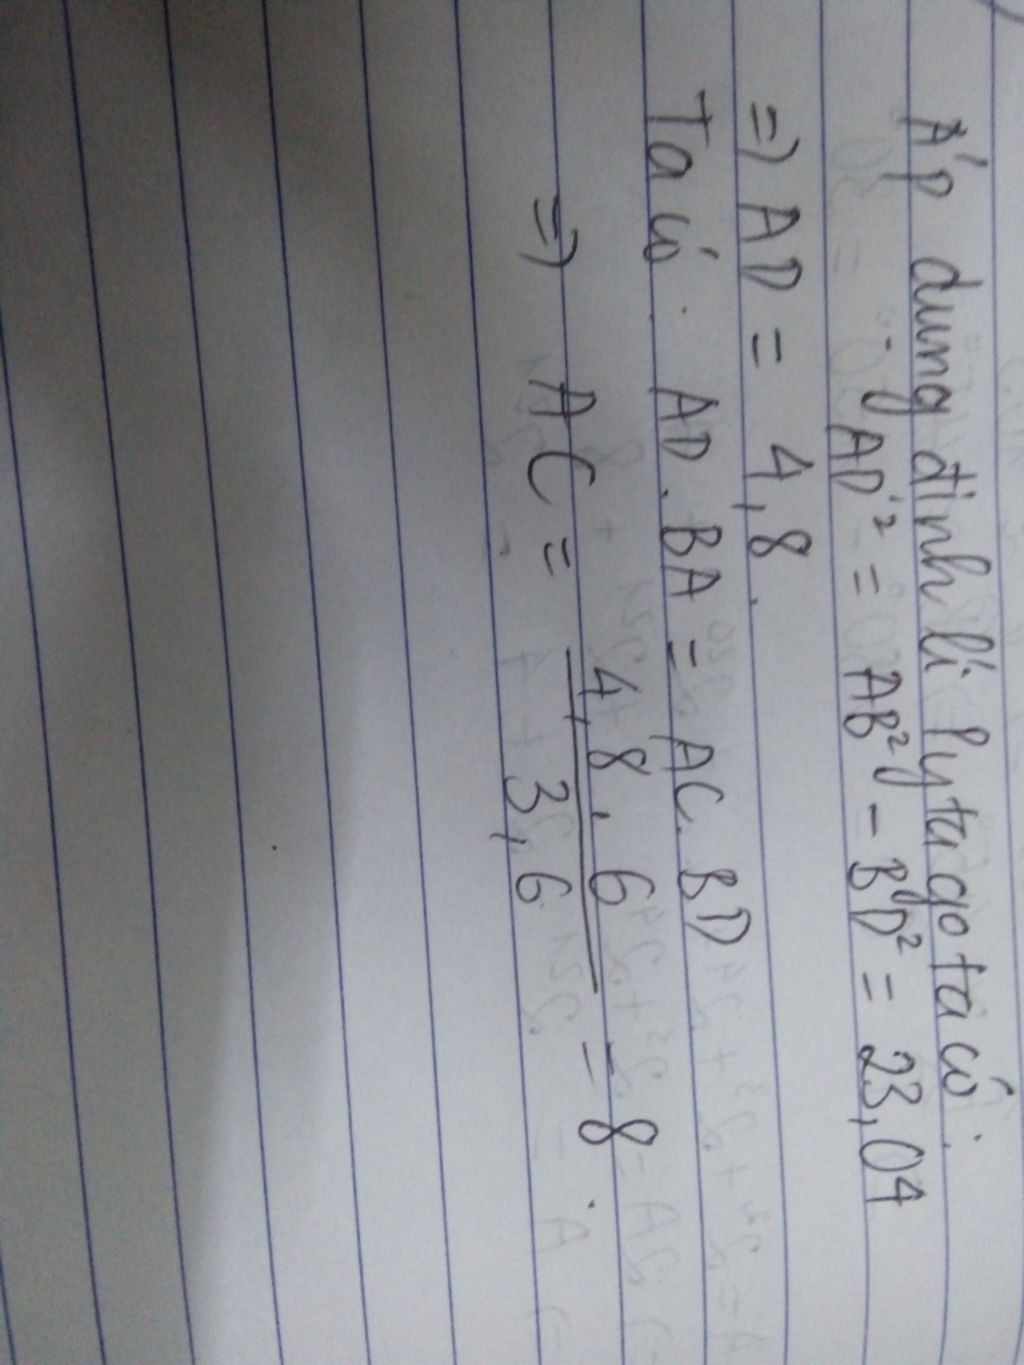 Áp dụng định lí Pytago ta có:
AD² = AB² - BD² = 23,04
=> AD = 4,8.
Ta có: AD.BA = AC.BD
=> AC = 4,8.6 / 3,6 = 8.